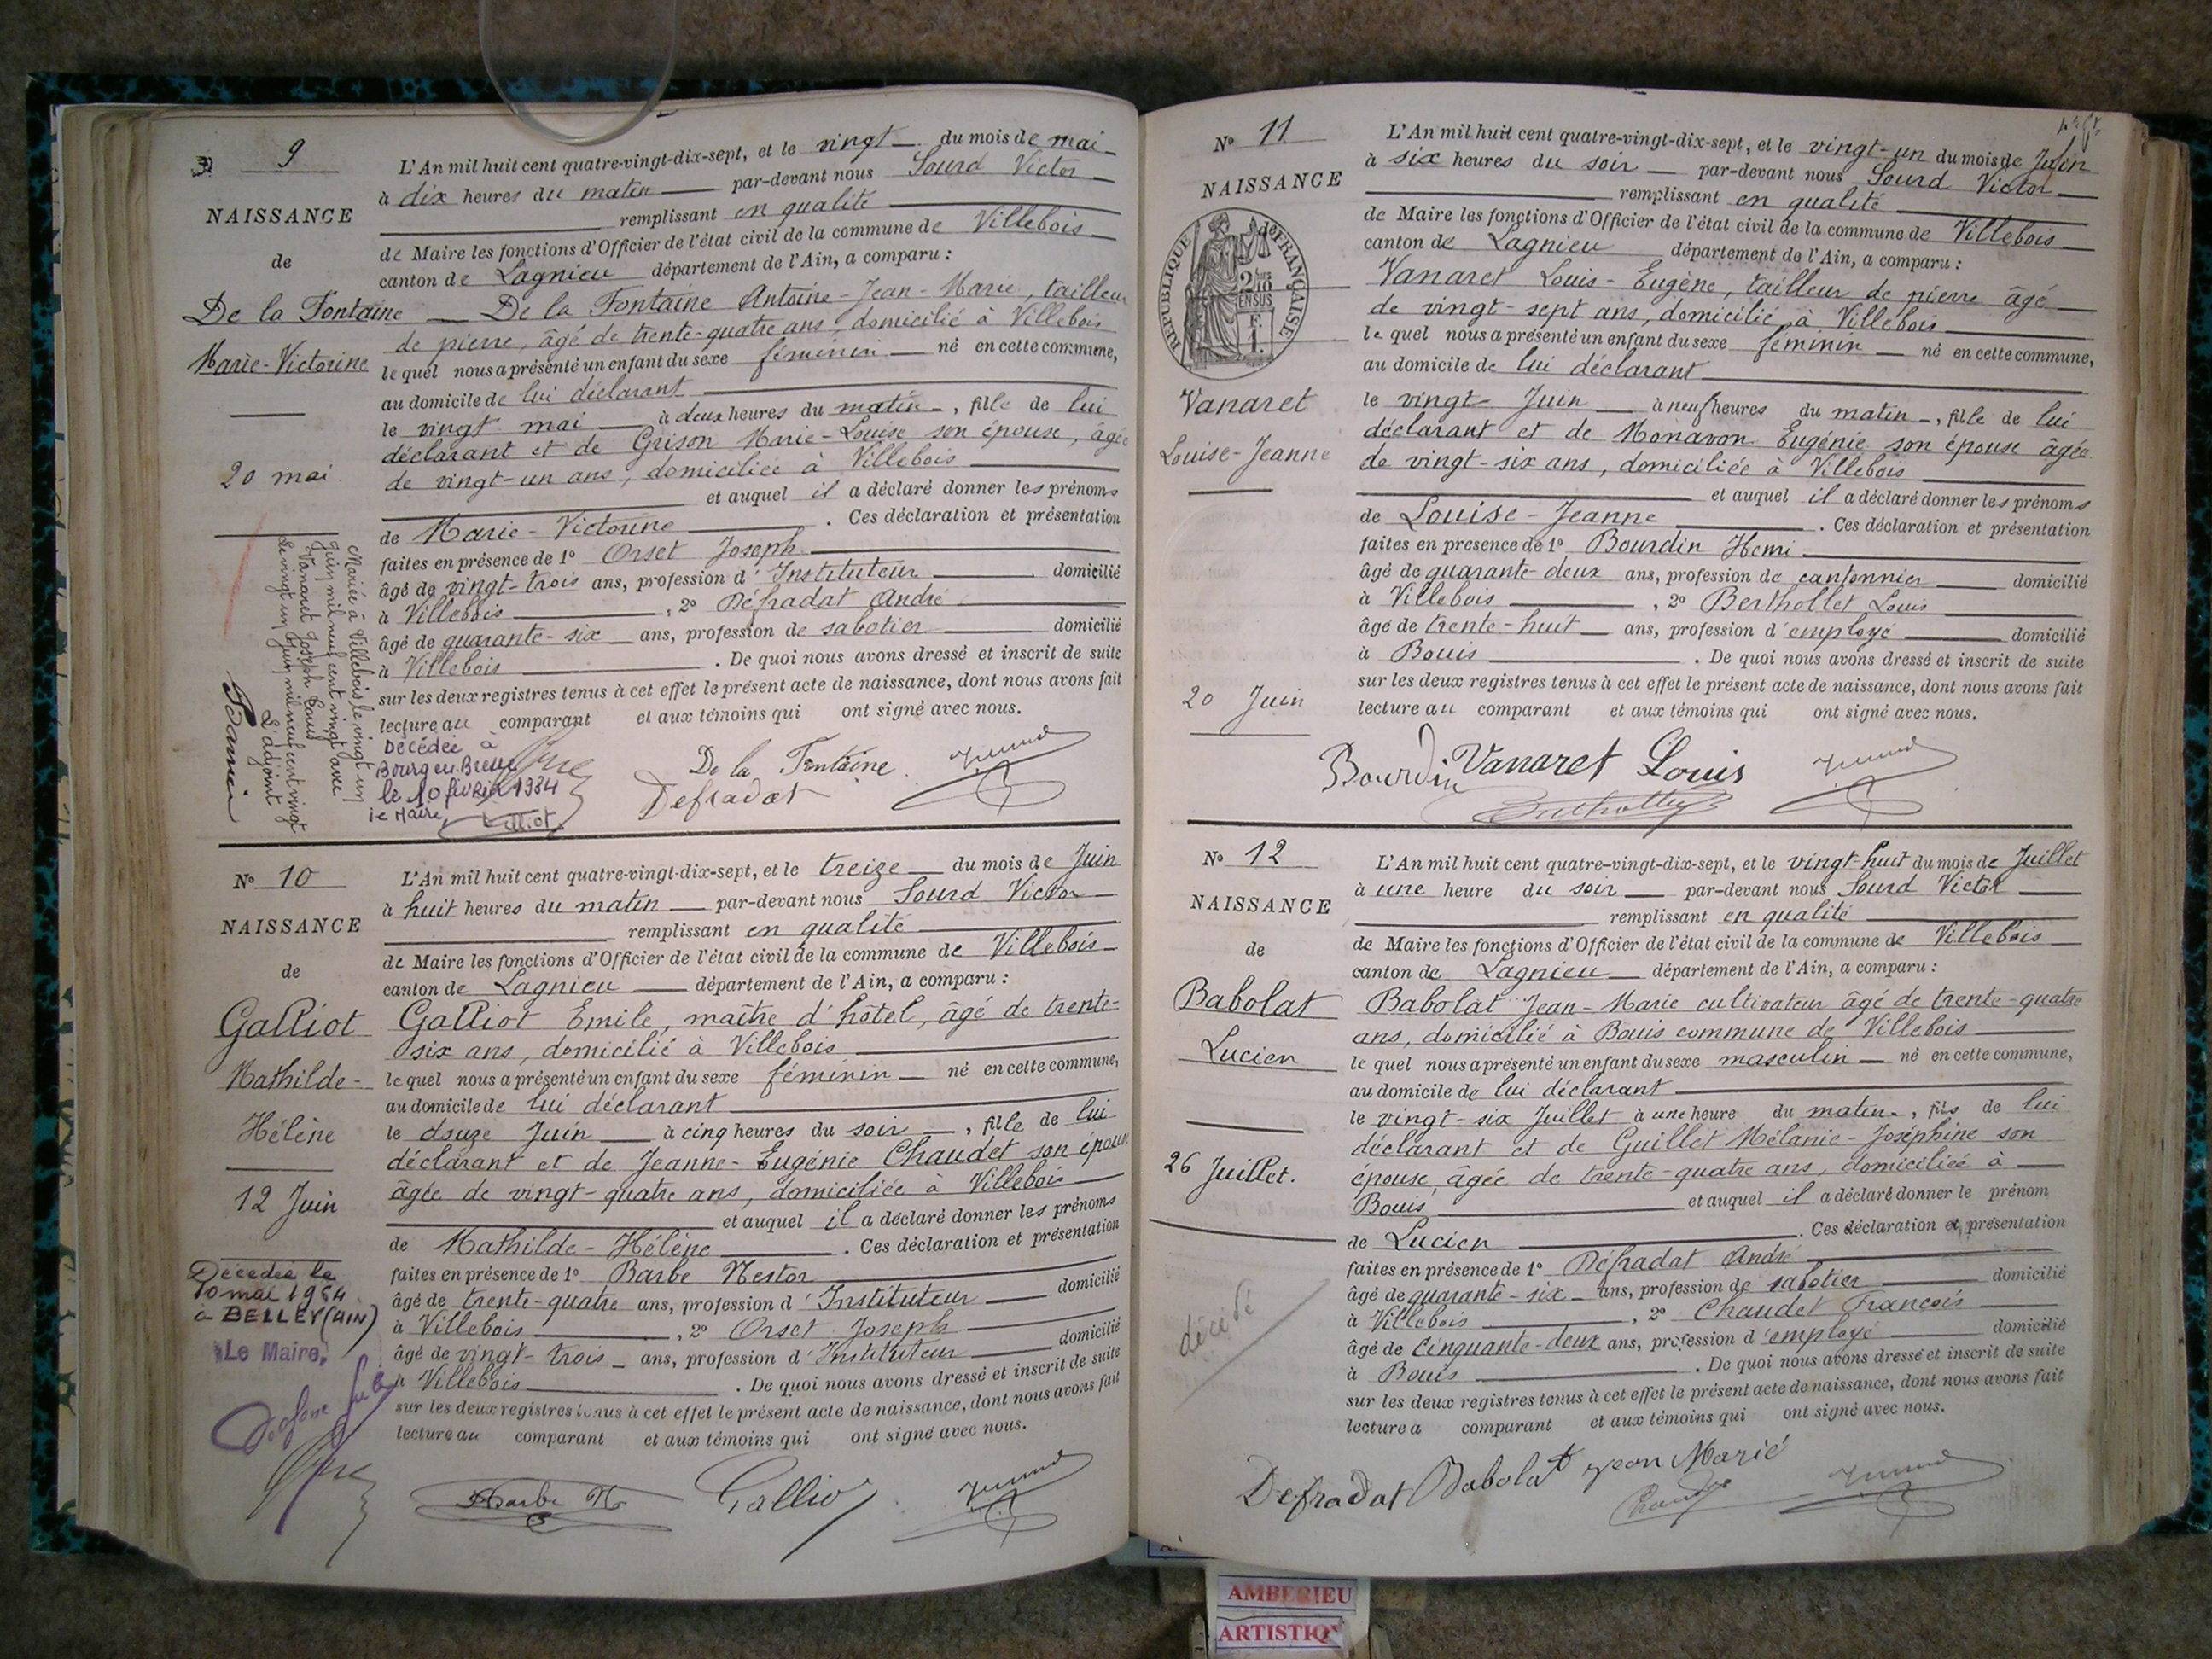 9
NAISSANCE
de
De la Fontaine
Marie-Victorine
20 mai
L'An mil huit cent quatre-vingt-dix-sept, et le vingt du mois de mai
à dix heures du matin par-devant nous Sourd Victor
remplissant en qualité
de Maire les fonctions d'Officier de l'état civil de la commune de Villebois
canton de Lagnieu département de l'Ain, a comparu :
De la Fontaine Antoine-Jean-Marie, tailleur
de pierre, âgé de trente-quatre ans, domicilié à Villebois
le quel nous a présenté un enfant du sexe féminin né en cette commune,
au domicile de lui déclarant
le vingt mai à deux heures du matin, fille de lui
déclarant et de Grison Marie-Louise son épouse, âgée
de vingt-un ans, domiciliée à Villebois
et auquel il a déclaré donner les prénoms
de Marie-Victorine. Ces déclaration et présentation
faites en présence de 1º Orset Joseph
âgé de vingt-trois ans, profession d'Instituteur domicilié
à Villebois, 2º Défradat André
âgé de quarante-six ans, profession de sabotier domicilié
à Villebois. De quoi nous avons dressé et inscrit de suite
sur les deux registres tenus à cet effet le présent acte de naissance, dont nous avons fait
lecture au comparant et aux témoins qui ont signé avec nous.
Mariée à Villebois le vingt un
Juin mil neuf cent vingt avec
Vanaret Joseph Louis
Le vingt un Juin mil neuf cent vingt
L'adjoint
Décédée à
Bourg en Bresse
le 10 février 1984
le Maire,
De la Fontaine
Defradat
Nº 10
NAISSANCE
de
Galliot
Mathilde-
Hélène
12 Juin
Décédée le
10 mai 1984
à BELLEY (AIN)
Le Maire,
L'An mil huit cent quatre-vingt-dix-sept, et le treize du mois de Juin
à huit heures du matin par-devant nous Sourd Victor
remplissant en qualité
de Maire les fonctions d'Officier de l'état civil de la commune de Villebois
canton de Lagnieu département de l'Ain, a comparu :
Galliot Emile, maître d'hôtel, âgé de trente-
six ans, domicilié à Villebois
le quel nous a présenté un enfant du sexe féminin né en cette commune,
au domicile de lui déclarant
le douze Juin à cinq heures du soir, fille de lui
déclarant et de Jeanne-Eugénie Chaudet son épouse
âgée de vingt-quatre ans, domiciliée à Villebois
et auquel il a déclaré donner les prénoms
de Mathilde-Hélène. Ces déclaration et présentation
faites en présence de 1º Barbe Nestor
âgé de trente-quatre ans, profession d'Instituteur domicilié
à Villebois, 2º Orset Joseph
âgé de vingt-trois ans, profession d'Instituteur domicilié
à Villebois. De quoi nous avons dressé et inscrit de suite
sur les deux registres tenus à cet effet le présent acte de naissance, dont nous avons fait
lecture au comparant et aux témoins qui ont signé avec nous.
Barbe N
Galliot
Nº 11
NAISSANCE
REPUBLIQUE FRANÇAISE
2/10
EN SUS
Vanaret
Louise-Jeanne
20 Juin
L'An mil huit cent quatre-vingt-dix-sept, et le vingt-un du mois de Juin
à six heures du soir par-devant nous Sourd Victor
remplissant en qualité
de Maire les fonctions d'Officier de l'état civil de la commune de Villebois
canton de Lagnieu département de l'Ain, a comparu :
Vanaret Louis-Eugène, tailleur de pierre âgé
de vingt-sept ans, domicilié à Villebois
le quel nous a présenté un enfant du sexe féminin né en cette commune,
au domicile de lui déclarant
le vingt Juin à neuf heures du matin, fille de lui
déclarant et de Monavon Eugénie son épouse âgée
de vingt-six ans, domiciliée à Villebois
et auquel il a déclaré donner les prénoms
de Louise-Jeanne. Ces déclaration et présentation
faites en présence de 1º Bourdin Henri
âgé de quarante-deux ans, profession de cantonnier domicilié
à Villebois, 2º Berthollet Louis
âgé de trente-huit ans, profession d'employé domicilié
à Bouis. De quoi nous avons dressé et inscrit de suite
sur les deux registres tenus à cet effet le présent acte de naissance, dont nous avons fait
lecture au comparant et aux témoins qui ont signé avec nous.
Bourdin Vanaret Louis
Nº 12
NAISSANCE
de
Babolat
Lucien
26 Juillet.
décédé
L'An mil huit cent quatre-vingt-dix-sept, et le vingt-huit du mois de Juillet
à une heure du soir par-devant nous Sourd Victor
remplissant en qualité
de Maire les fonctions d'Officier de l'état civil de la commune de Villebois
canton de Lagnieu département de l'Ain, a comparu :
Babolat Jean-Marie cultivateur âgé de trente-quatre
ans, domicilié à Bouis commune de Villebois
le quel nous a présenté un enfant du sexe masculin né en cette commune,
au domicile de lui déclarant
le vingt-six Juillet à une heure du matin, fils de lui
déclarant et de Guillet Mélanie-Joséphine son
épouse, âgée de trente-quatre ans, domiciliée à
Bouis et auquel il a déclaré donner le prénom
de Lucien. Ces déclaration et présentation
faites en présence de 1º Défradat André
âgé de quarante-six ans, profession de sabotier domicilié
à Villebois, 2º Chaudet François
âgé de Cinquante-deux ans, profession d'employé domicilié
à Bouis. De quoi nous avons dressé et inscrit de suite
sur les deux registres tenus à cet effet le présent acte de naissance, dont nous avons fait
lecture a comparant et aux témoins qui ont signé avec nous.
Defradat Babolat jean Marie
AMBERIEU
ARTISTIQ